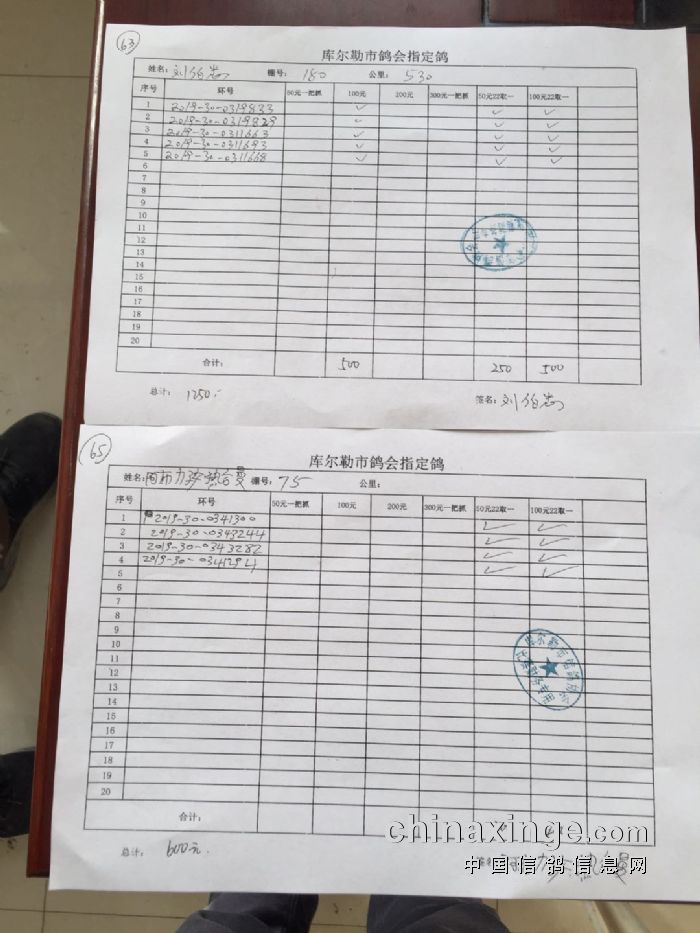 63
库尔勒市鸽会指定鸽
姓名：刘伯志 棚号：180 公里：530
序号 环号 50元一把抓 100元 200元 300元一把抓 50元22取一 100元22取一
1 2019-30-0319833 ✓ ✓ ✓
2 2019-30-0319829 ✓ ✓ ✓
3 2019-30-0311663 ✓ ✓ ✓
4 2019-30-0311693 ✓ ✓ ✓
5 2019-30-0311668 ✓ ✓ ✓
6
7
8
9
10
11
12
13
14
15
16
17
18
19
20
合计： 500 250 500
总计： 1250.-
签名：刘伯志
65
库尔勒市鸽会指定鸽
姓名： 棚号：75 公里：
序号 环号 50元一把抓 100元 200元 300元一把抓 50元22取一 100元22取一
1 2019-30-0341300 ✓ ✓
2 2019-30-0343244 ✓ ✓
3 2019-30-0343282 ✓ ✓
4 2019-30-0341294 ✓ ✓
5 ✓ ✓
6
7
8
9
10
11
12
13
14
15
16
17
18
19
20
合计：
总计： 600元.
chinaxinge.com
中国信鸽信息网